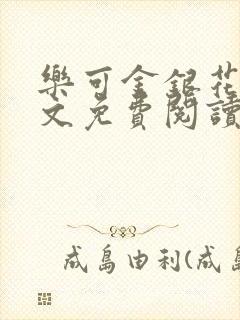 樂可金銀花
文免費閱讀
成島由利(成島